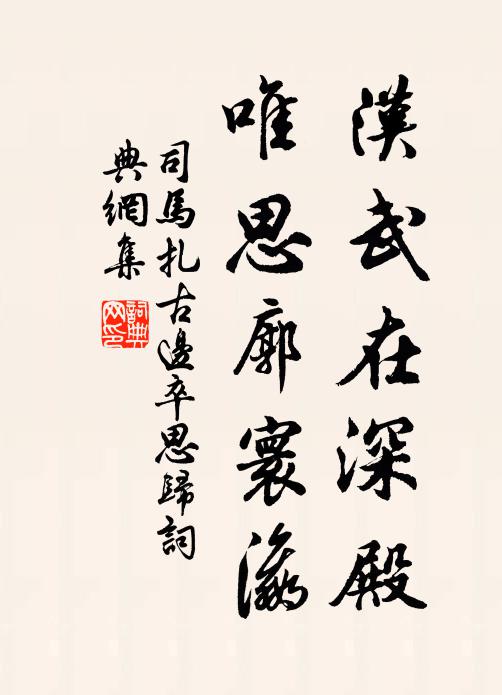 漢武在深殿
唯思廓寰瀛
司馬扎古邊卒思歸詞
典網集
詞典網印